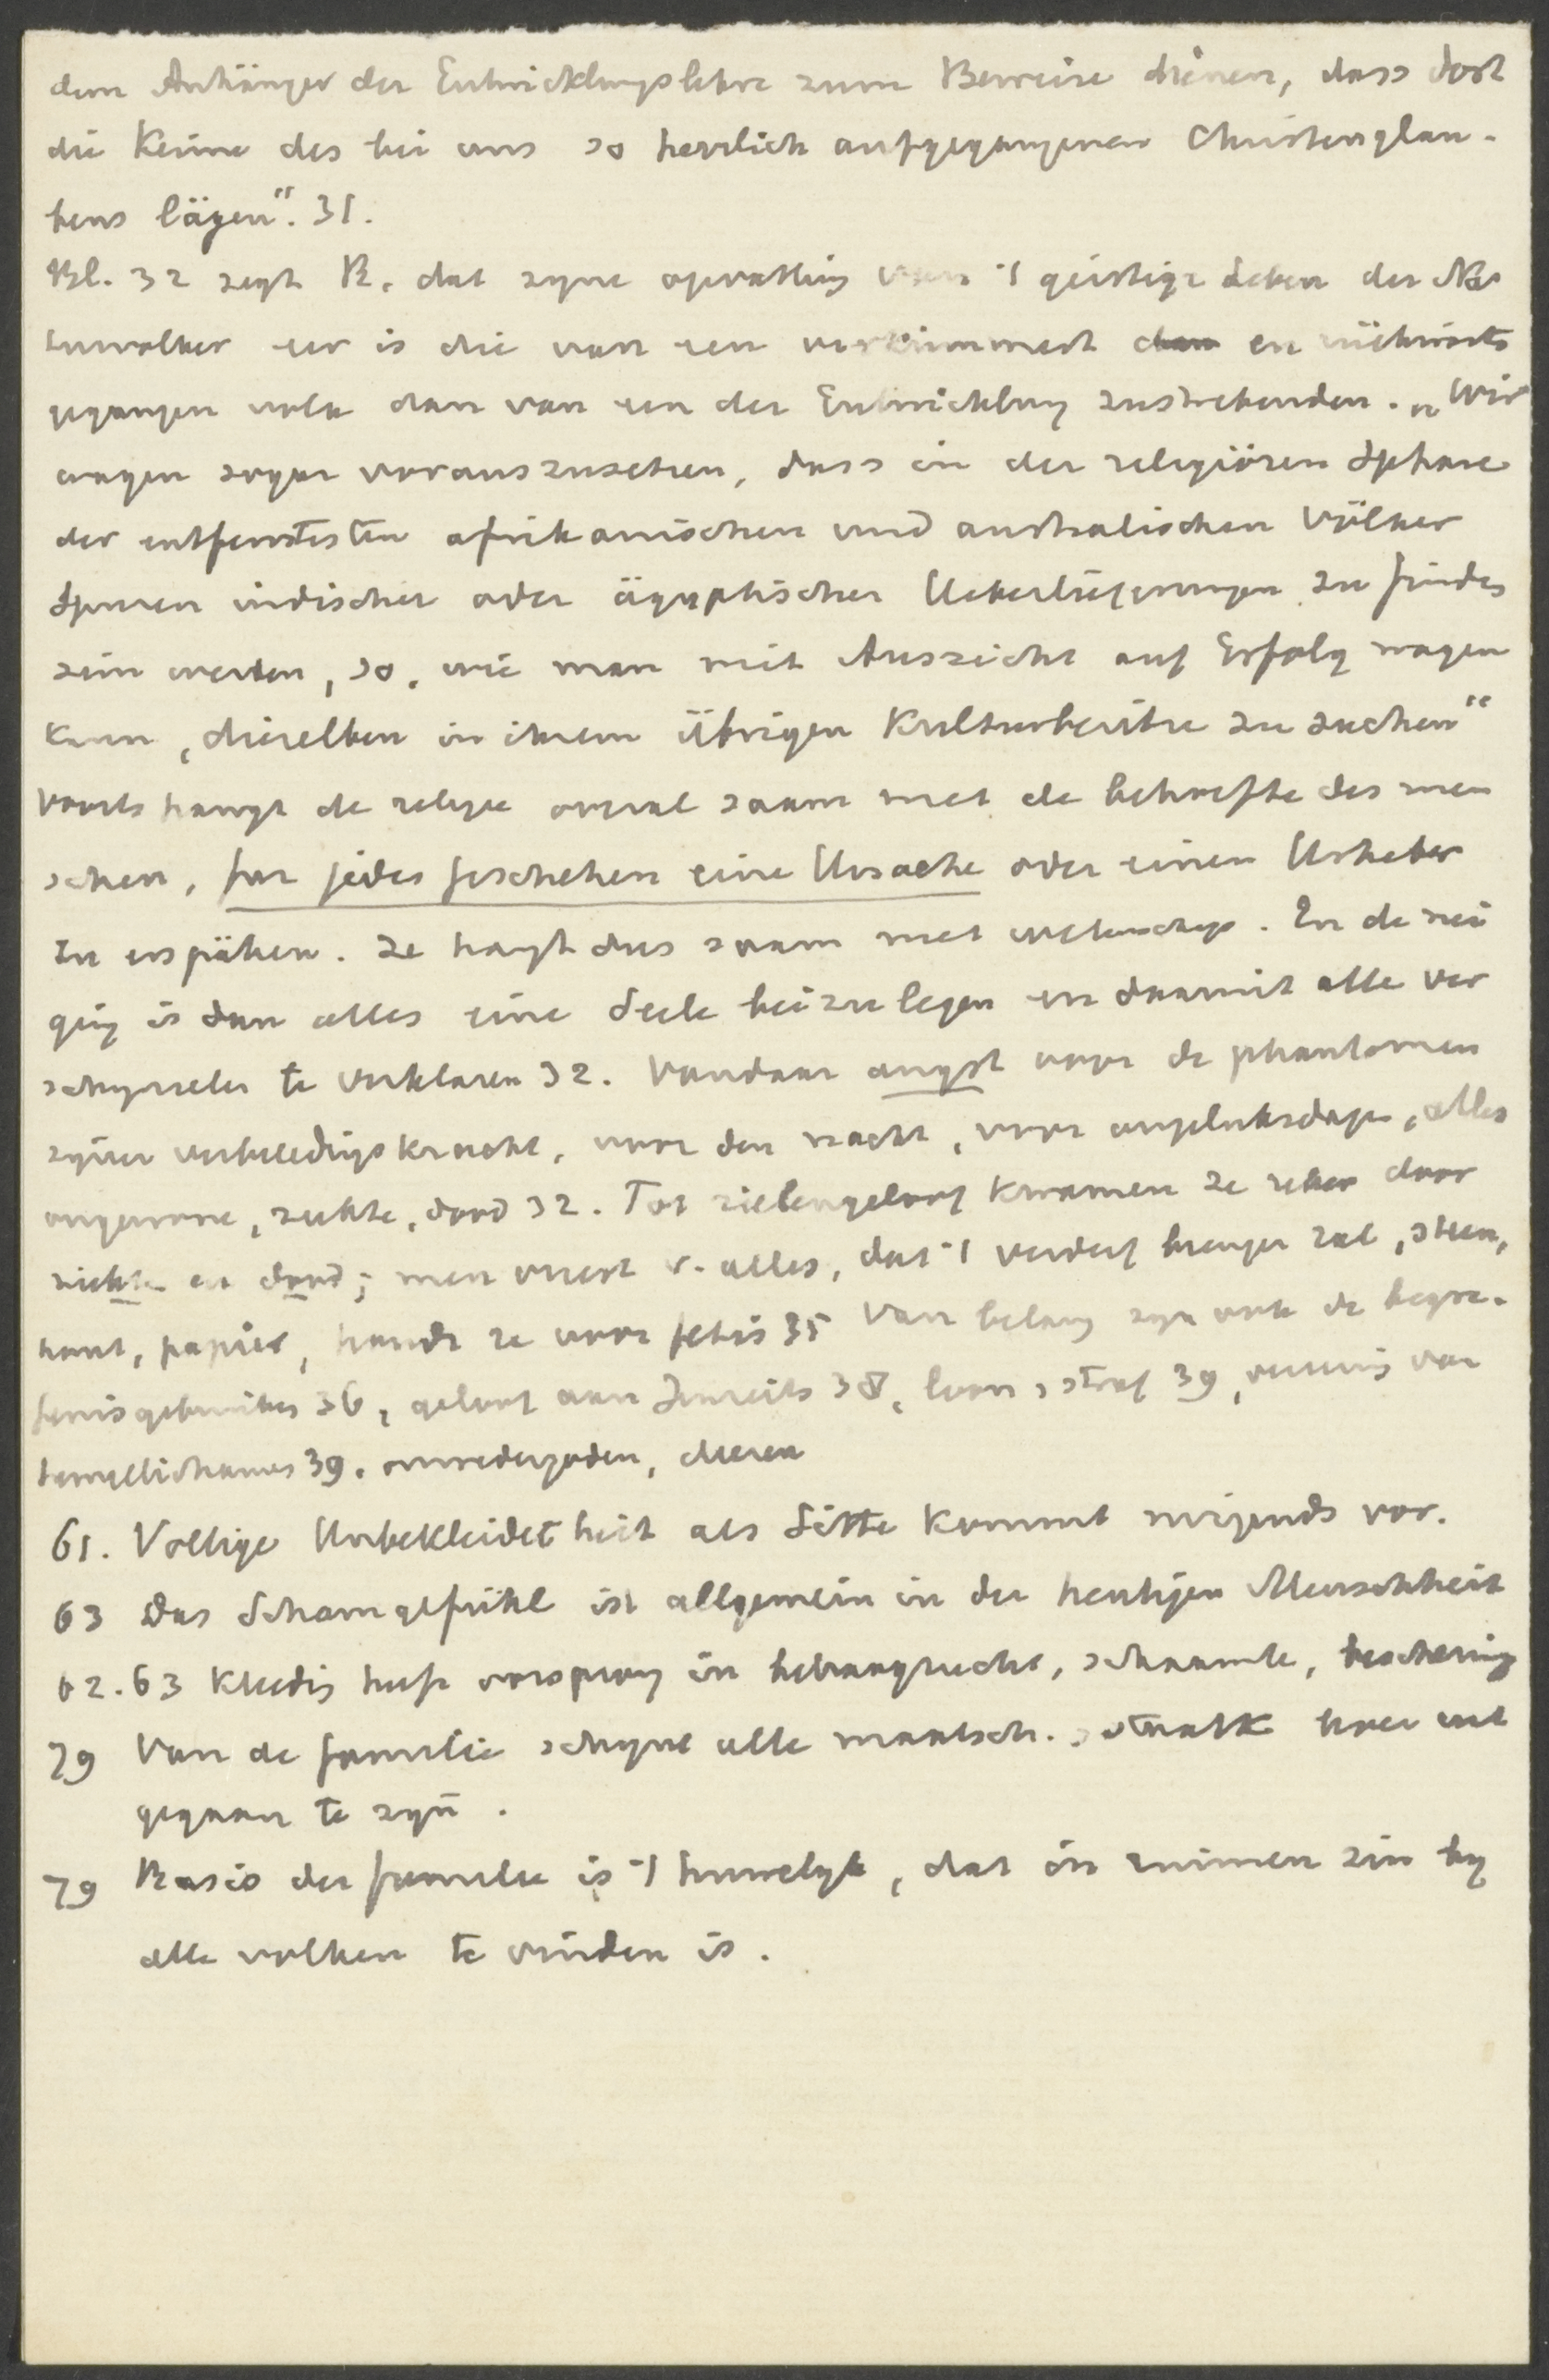 dem Anhänger der Entwicklungslehre zum Beweise dienen, dass dort
die Keime des bei uns so herrlich aufgegangenen Christenglau-
bens lägen". 31.
Bl. 32 zegt R. dat zyne opvatting van 't geistige Leben der Na
turvolker eer is die van een verkümmert en rückwärts
gegangen volk dan van een der Entwicklung zustrebenden. „Wir
wagen sogar vorauszusetzen, dass in der religiösen Sphäre
der entferntesten afrikanischen und australischen Völker
Spuren indischer oder ägyptischer Ueberlieferungen zu finden
sein werden, so, wie man mit Aussicht auf Erfolg wagen
kann, dieselben in ihrem übrigen Kulturbesitze zu suchen"
Voorts hangt de religie overal saam met de behoefte des men
schen, für jedes Geschehen eine Ursache oder einen Urheber
zu erspähen. Ze hangt dus saam met wetenschap. En de nei
ging is dan alles eine Seele beizulegen en daarmit alle ver
schynselen te verklaren 32. Vandaar angst voor de phantomen
zyner verbeeldingskracht, voor den nacht, voor ongeluksdagen, alles
ongewone, ziekte, dood 32. Tot zielengeloof kwamen ze zeker door
ziekte en dood; men vreest v. alles, dat 't verderf brengen zal, steen,
hout, papier, houdt ze voor fetis 35 Van belang zyn ook de begra-
fenisgebruiken 36, geloof aan Jenseits 38, loon, straf 39,
39. onwedergoden, dieren
61. Vollige Unbekleidetheit als Sitte kommt nirgends vor.
63 Das Schamgefühl ist allgemein in der heutigen Menschheit
62.63 Kleeding heeft oorsprong in behaagzucht, schaamte, bescherming
79 Van de familie schynt alle maatsch. , staatk leven uit
gegaan te zyn .
79 Basis der familie is 't huwelyk, dat in ruimen zin by
alle volken te vinden is.